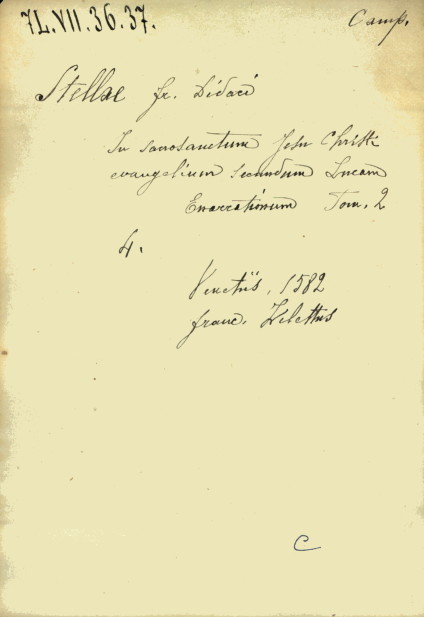 7L.VII.36.37.
Camp.
Stellae fr. Didaci
In sacrosanctum Jesu Christi
evangelium secundum Lucam
Enarrationum Tom. 2
4.
Venetiis, 1582
franc. Zilettus
C